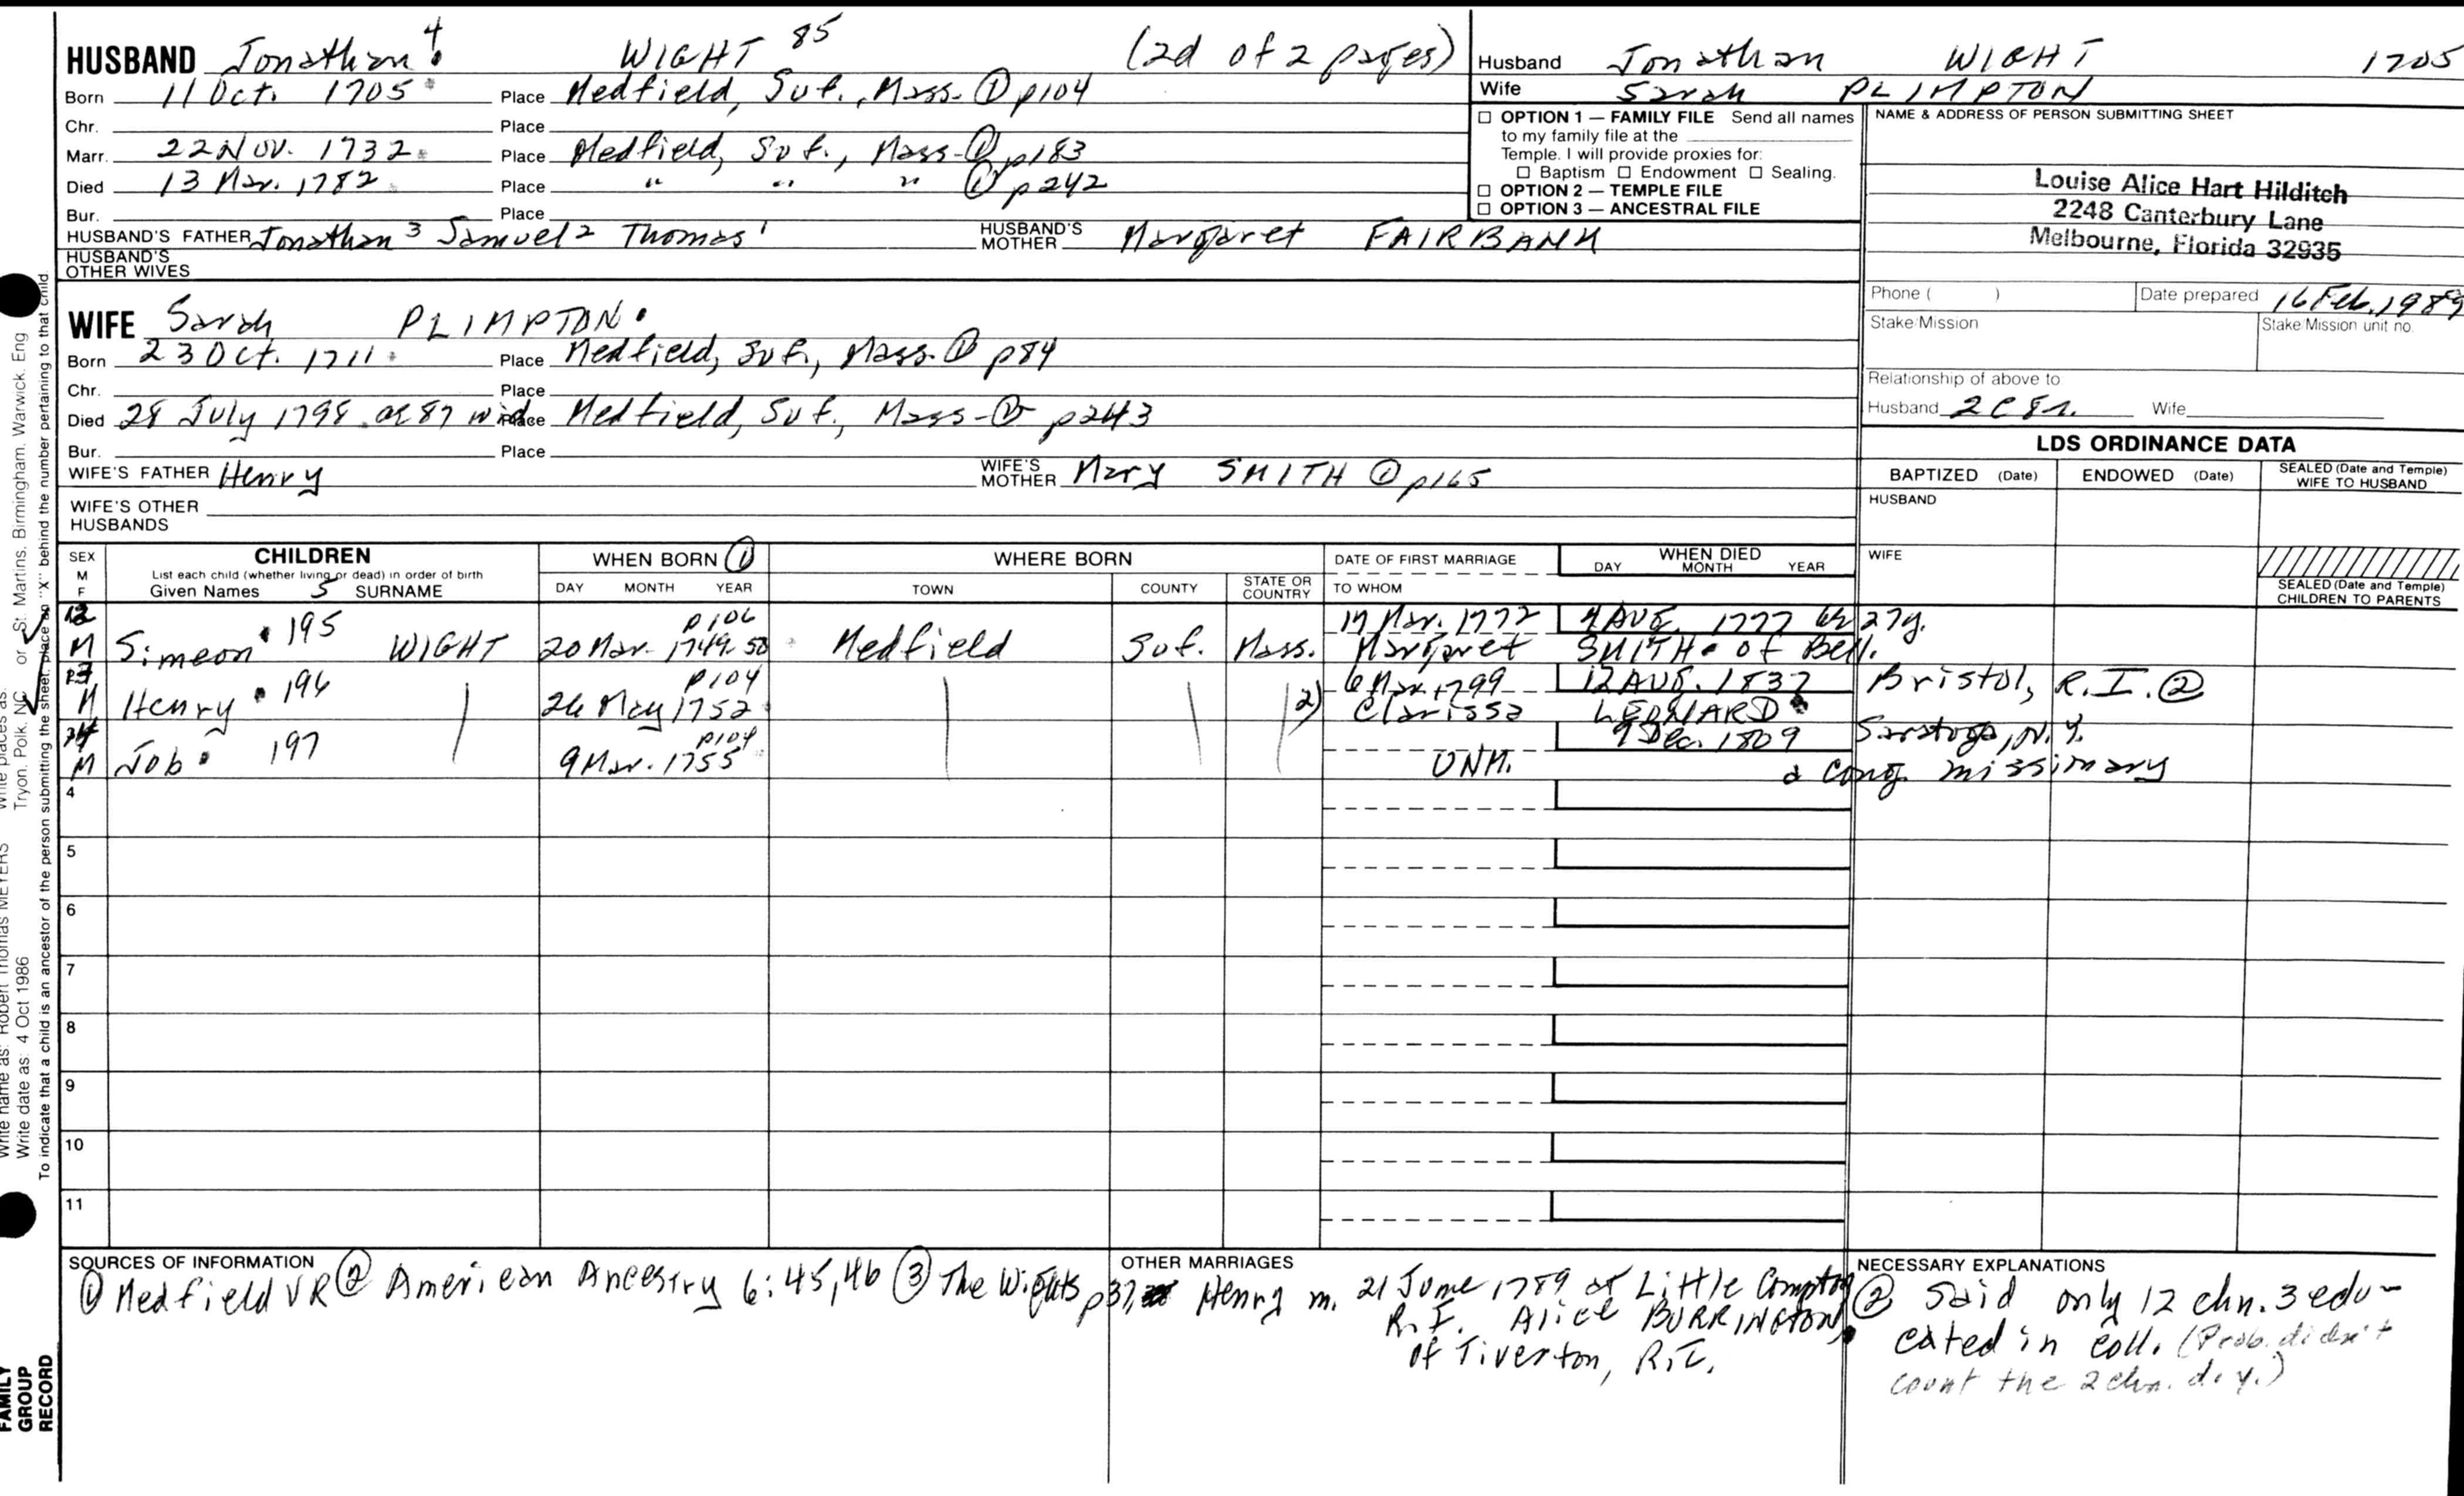 HUSBAND Jonathan 4 WIGHT 85 (2d of 2 pages)
Born 11 Oct. 1705 Place Medfield, Suf., Mass. ① p104
Chr. Place
Marr. 22 Nov. 1732 Place Medfield, Suf., Mass-① p183
Died 13 Mar. 1782 Place " " " ① p242
Bur. Place
HUSBAND'S FATHER Jonathan 3 Samuel 2 Thomas 1 HUSBAND'S MOTHER Margaret FAIRBANK
HUSBAND'S OTHER WIVES
Husband Jonathan WIGHT 1705
Wife Sarah PLIMPTON
☐ OPTION 1 — FAMILY FILE Send all names
to my family file at the
Temple. I will provide proxies for:
☐ Baptism ☐ Endowment ☐ Sealing.
☐ OPTION 2 — TEMPLE FILE
☐ OPTION 3 — ANCESTRAL FILE
NAME & ADDRESS OF PERSON SUBMITTING SHEET
Louise Alice Hart Hilditch
2248 Canterbury Lane
Melbourne, Florida 32935
Phone ( ) Date prepared 16 Feb. 1989
Stake/Mission Stake Mission unit no.
Relationship of above to
Husband 2C8r. Wife
WIFE Sarah PLIMPTON
Born 23 Oct. 1711 Place Medfield, Suf., Mass. ① p84
Chr. Place
Died 28 July 1798 ae 87 wid Place Medfield, Suf., Mass-① p243
Bur. Place
WIFE'S FATHER Henry WIFE'S MOTHER Mary SMITH ① p165
WIFE'S OTHER HUSBANDS
LDS ORDINANCE DATA
BAPTIZED (Date) ENDOWED (Date) SEALED (Date and Temple) WIFE TO HUSBAND
HUSBAND
WIFE
SEALED (Date and Temple) CHILDREN TO PARENTS
SEX M F CHILDREN WHEN BORN ① WHERE BORN DATE OF FIRST MARRIAGE WHEN DIED
List each child (whether living or dead) in order of birth
Given Names 5 SURNAME DAY MONTH YEAR TOWN COUNTY STATE OR COUNTRY TO WHOM DAY MONTH YEAR
12 p106 1772 AUG. 1777 27y.
M Simeon 195 WIGHT 20 Mar. 1749-50 Medfield Suf. Mass. Margaret SMITH of Bell.
13 p104 6 Mar. 1799 12 AUG. 1837 Bristol, R.I. ②
M Henry 196 26 May 1752 2) Clarissa LEONARD
14 p104 9 Dec. 1809 Saratoga, N.Y.
M Job 197 9 Mar. 1755 UNM. a Cong. missionary
4
5
6
7
8
9
10
11
SOURCES OF INFORMATION
① Medfield VR ② American Ancestry 6:45,46 ③ The Wights p37,
OTHER MARRIAGES
Henry m. 21 June 1789 at Little Compton
R.I. Alice BURRINGTON
of Tiverton, R.I.
NECESSARY EXPLANATIONS
② Said only 12 chn. 3 edu-
cated in coll. (Prob. didn't
count the 2 chn. d.y.)
Write name as: Robert Thomas MEYERS Write places as: Tryon, Polk, NC or St. Martins, Birmingham, Warwick, Eng
Write date as: 4 Oct 1986
To indicate that a child is an ancestor of the person submitting the sheet, place an "X" behind the number pertaining to that child
FAMILY
GROUP
RECORD